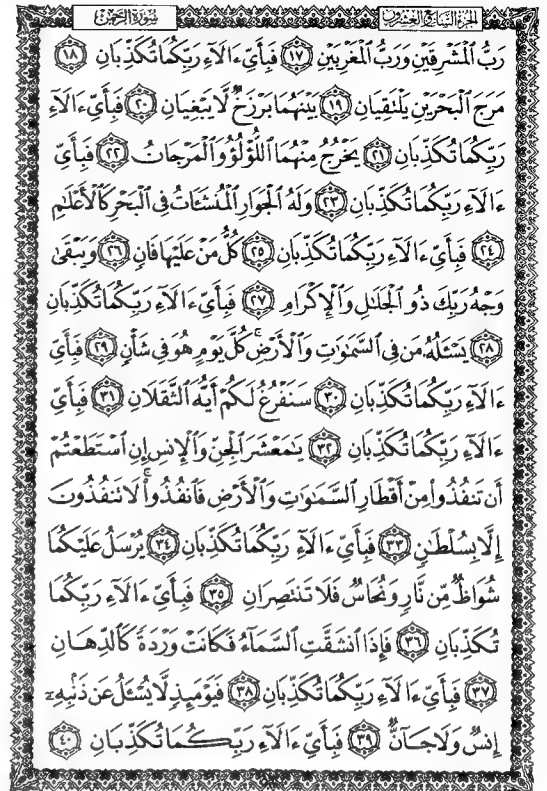 سُورَةُ الرَّحْمٰن
الجُزْءُ السَّابِعُ وَالعِشْرُون
رَبُّ ٱلْمَشْرِقَيْنِ وَرَبُّ ٱلْمَغْرِبَيْنِ ١٧ فَبِأَيِّ ءَالَآءِ رَبِّكُمَا تُكَذِّبَانِ ١٨
مَرَجَ ٱلْبَحْرَيْنِ يَلْتَقِيَانِ ١٩ بَيْنَهُمَا بَرْزَخٌ لَّا يَبْغِيَانِ ٢٠ فَبِأَيِّ ءَالَآءِ
رَبِّكُمَا تُكَذِّبَانِ ٢١ يَخْرُجُ مِنْهُمَا ٱللُّؤْلُؤُ وَٱلْمَرْجَانُ ٢٢ فَبِأَيِّ
ءَالَآءِ رَبِّكُمَا تُكَذِّبَانِ ٢٣ وَلَهُ ٱلْجَوَارِ ٱلْمُنشَـَٔاتُ فِى ٱلْبَحْرِ كَٱلْأَعْلَٰمِ
٢٤ فَبِأَيِّ ءَالَآءِ رَبِّكُمَا تُكَذِّبَانِ ٢٥ كُلُّ مَنْ عَلَيْهَا فَانٍ ٢٦ وَيَبْقَىٰ
وَجْهُ رَبِّكَ ذُو ٱلْجَلَٰلِ وَٱلْإِكْرَامِ ٢٧ فَبِأَيِّ ءَالَآءِ رَبِّكُمَا تُكَذِّبَانِ
٢٨ يَسْـَٔلُهُۥ مَن فِى ٱلسَّمَٰوَٰتِ وَٱلْأَرْضِ ۚ كُلَّ يَوْمٍ هُوَ فِى شَأْنٍ ٢٩ فَبِأَيِّ
ءَالَآءِ رَبِّكُمَا تُكَذِّبَانِ ٣٠ سَنَفْرُغُ لَكُمْ أَيُّهَ ٱلثَّقَلَانِ ٣١ فَبِأَيِّ
ءَالَآءِ رَبِّكُمَا تُكَذِّبَانِ ٣٢ يَٰمَعْشَرَ ٱلْجِنِّ وَٱلْإِنسِ إِنِ ٱسْتَطَعْتُمْ
أَن تَنفُذُوا۟ مِنْ أَقْطَارِ ٱلسَّمَٰوَٰتِ وَٱلْأَرْضِ فَٱنفُذُوا۟ ۚ لَا تَنفُذُونَ
إِلَّا بِسُلْطَٰنٍ ٣٣ فَبِأَيِّ ءَالَآءِ رَبِّكُمَا تُكَذِّبَانِ ٣٤ يُرْسَلُ عَلَيْكُمَا
شُوَاظٌ مِّن نَّارٍ وَنُحَاسٌ فَلَا تَنتَصِرَانِ ٣٥ فَبِأَيِّ ءَالَآءِ رَبِّكُمَا
تُكَذِّبَانِ ٣٦ فَإِذَا ٱنشَقَّتِ ٱلسَّمَآءُ فَكَانَتْ وَرْدَةً كَٱلدِّهَانِ
٣٧ فَبِأَيِّ ءَالَآءِ رَبِّكُمَا تُكَذِّبَانِ ٣٨ فَيَوْمَئِذٍ لَّا يُسْـَٔلُ عَن ذَنۢبِهِۦٓ
إِنسٌ وَلَا جَآنٌّ ٣٩ فَبِأَيِّ ءَالَآءِ رَبِّكُمَا تُكَذِّبَانِ ٤٠